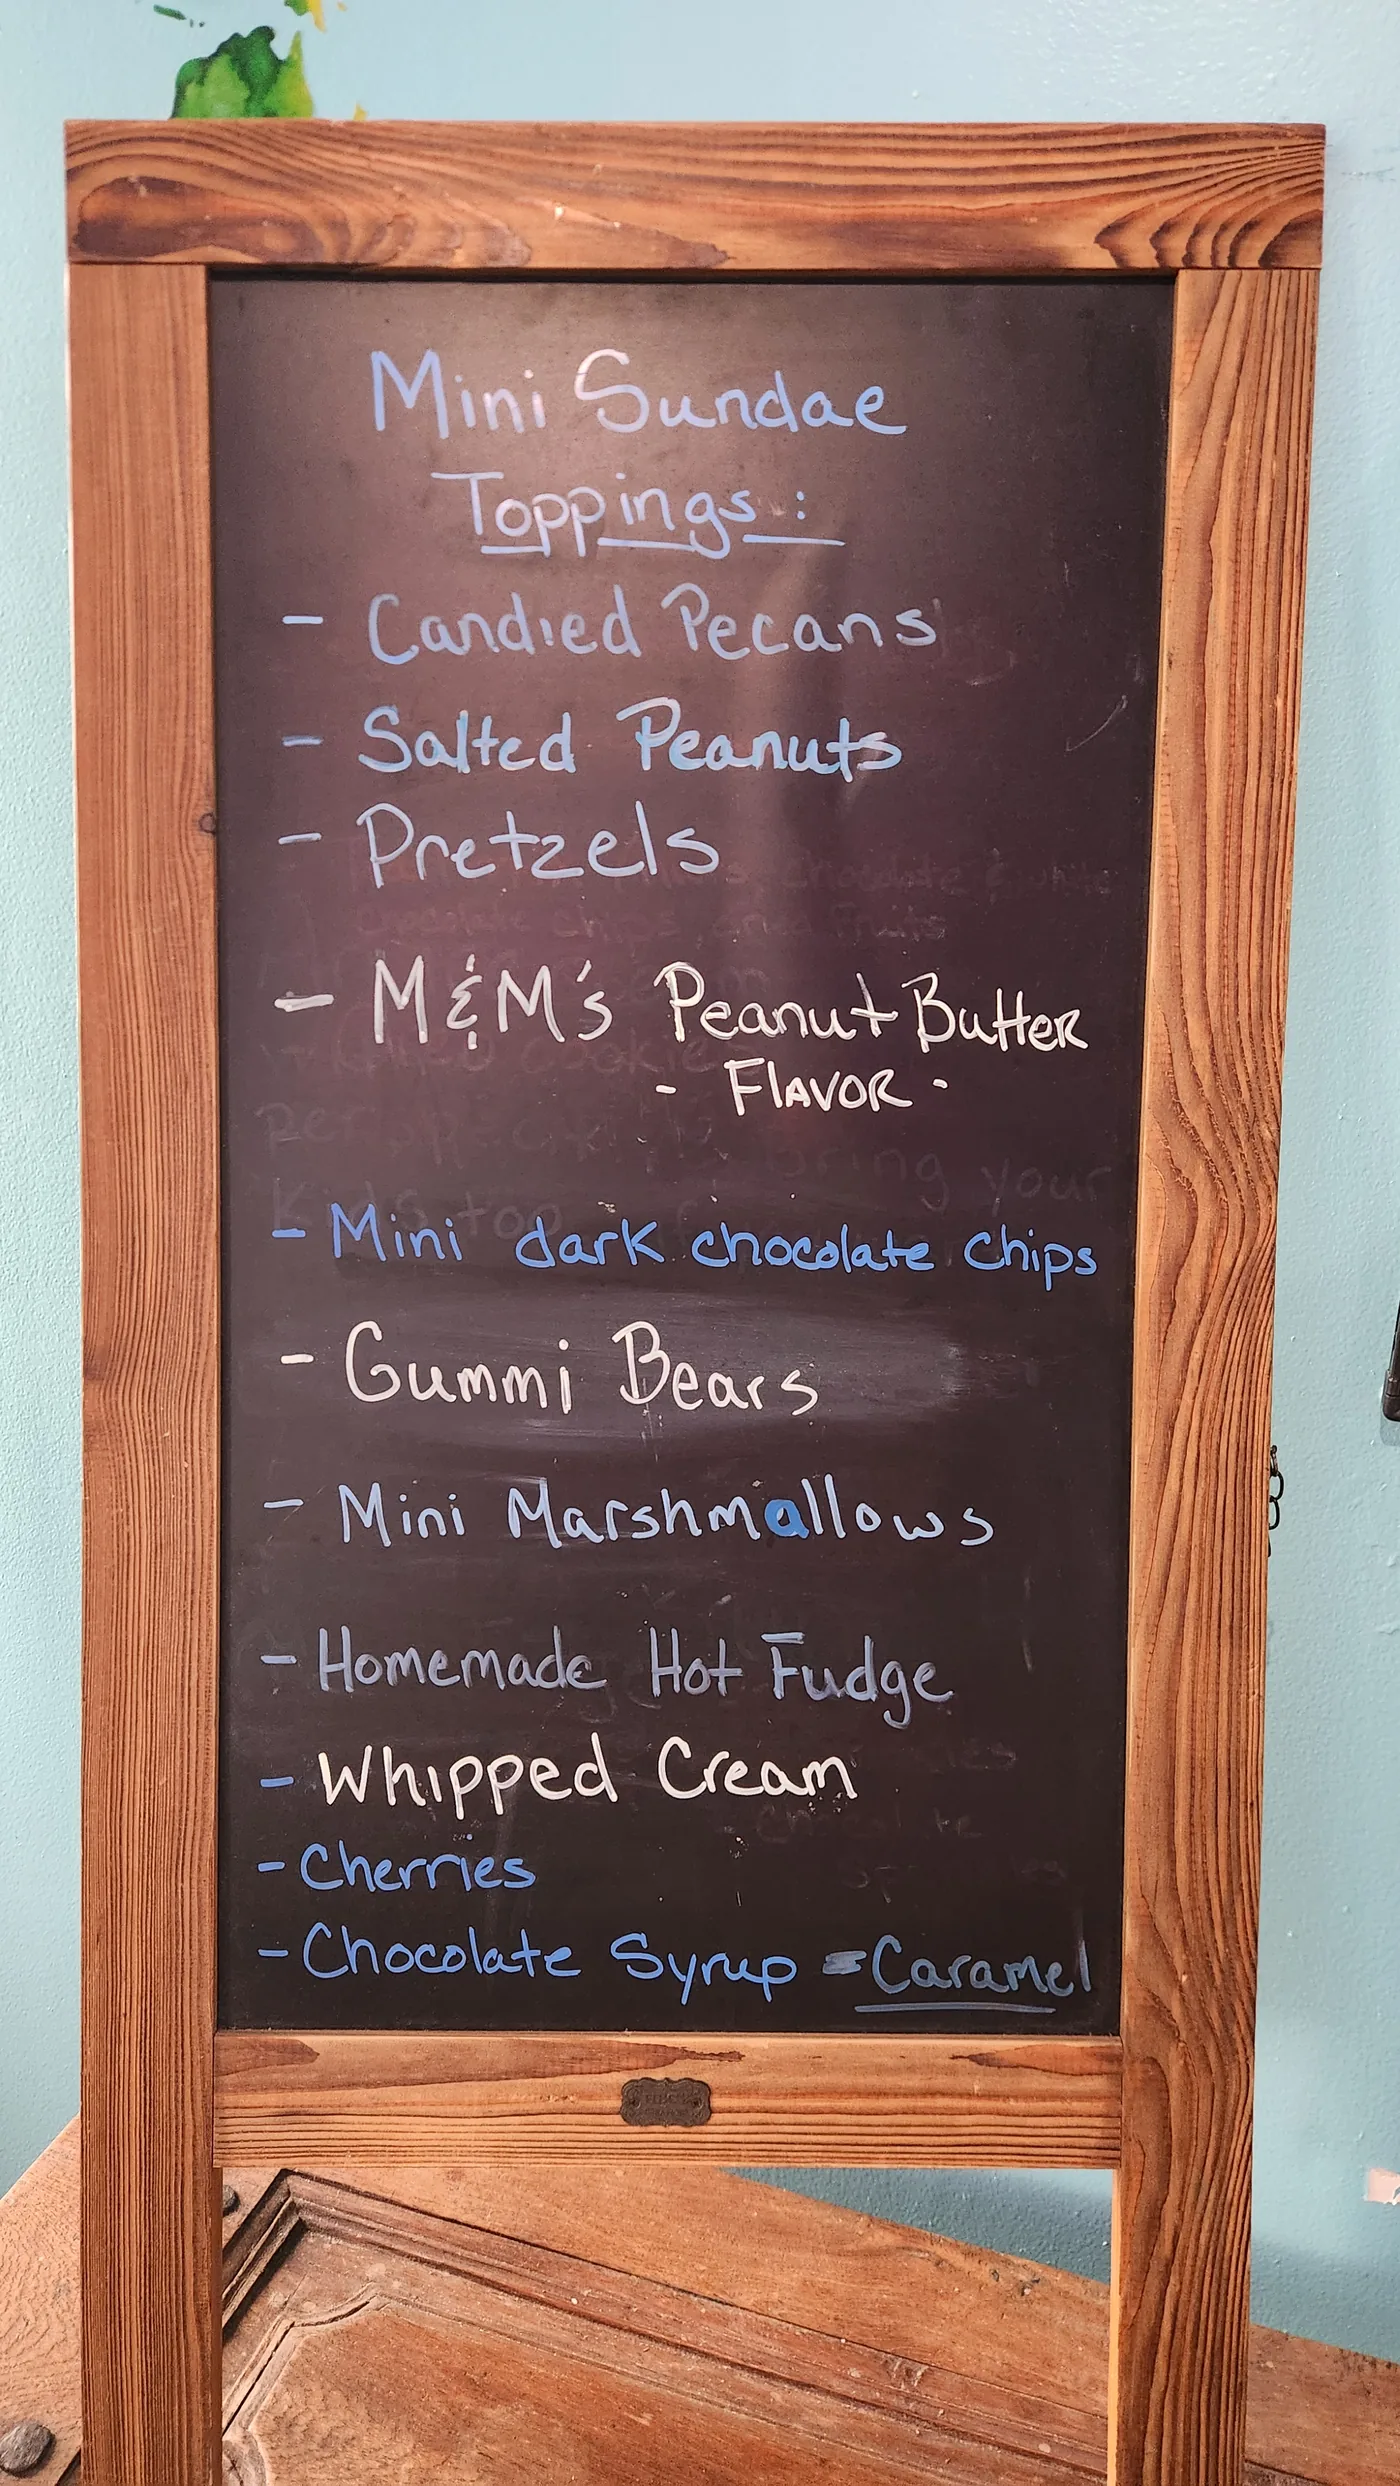 Mini Sundae
Toppings :
- Candied Pecans
- Salted Peanuts
- Pretzels
- M&M's Peanut Butter
- FLAVOR -
- Mini dark chocolate chips
- Gummi Bears
- Mini Marshmallows
- Homemade Hot Fudge
- Whipped Cream
- Cherries
- Chocolate Syrup - Caramel